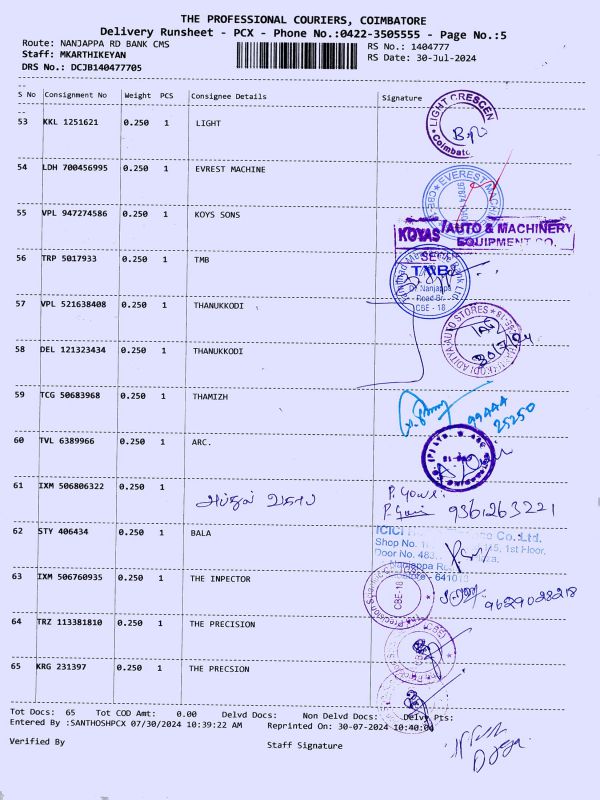 THE PROFESSIONAL COURIERS, COIMBATORE
Delivery Runsheet - PCX - Phone No.:0422-3505555 - Page No.:5
Route: NANJAPPA RD BANK CMS RS No.: 1404777
Staff: MKARTHIKEYAN RS Date: 30-Jul-2024
DRS No.: DCJB140477705
S No Consignment No Weight PCS Consignee Details Signature
53 KKL 1251621 0.250 1 LIGHT
LIGHT CRESCEN
54 LDH 700456995 0.250 1 EVREST MACHINE
EVEREST MACHI
55 VPL 947274586 0.250 1 KOYS SONS
KOYAS AUTO & MACHINERY
EQUIPMENT CO.
56 TRP 5017933 0.250 1 TMB
TMB
Nanjappa
Road Br.
CBE - 18
57 VPL 521638408 0.250 1 THANUKKODI
ADITYA AUTO STORES
30/7/24
58 DEL 121323434 0.250 1 THANUKKODI
59 TCG 50683968 0.250 1 THAMIZH
99444
25250
60 TVL 6389966 0.250 1 ARC.
61 IXM 506806322 0.250 1
P. Gowri
9361263221
62 STY 406434 0.250 1 BALA
ICICI Co. Ltd.
Shop No. 1st Floor,
Door No. 483,
Nanjappa
63 IXM 506760935 0.250 1 THE INPECTOR
CBE-18
9629028218
64 TRZ 113381810 0.250 1 THE PRECISION
65 KRG 231397 0.250 1 THE PRECSION
Tot Docs: 65 Tot COD Amt: 0.00 Delvd Docs: Non Delvd Docs: Delvy Pts:
Entered By :SANTHOSHPCX 07/30/2024 10:39:22 AM Reprinted On: 30-07-2024 10:40:06
Verified By Staff Signature